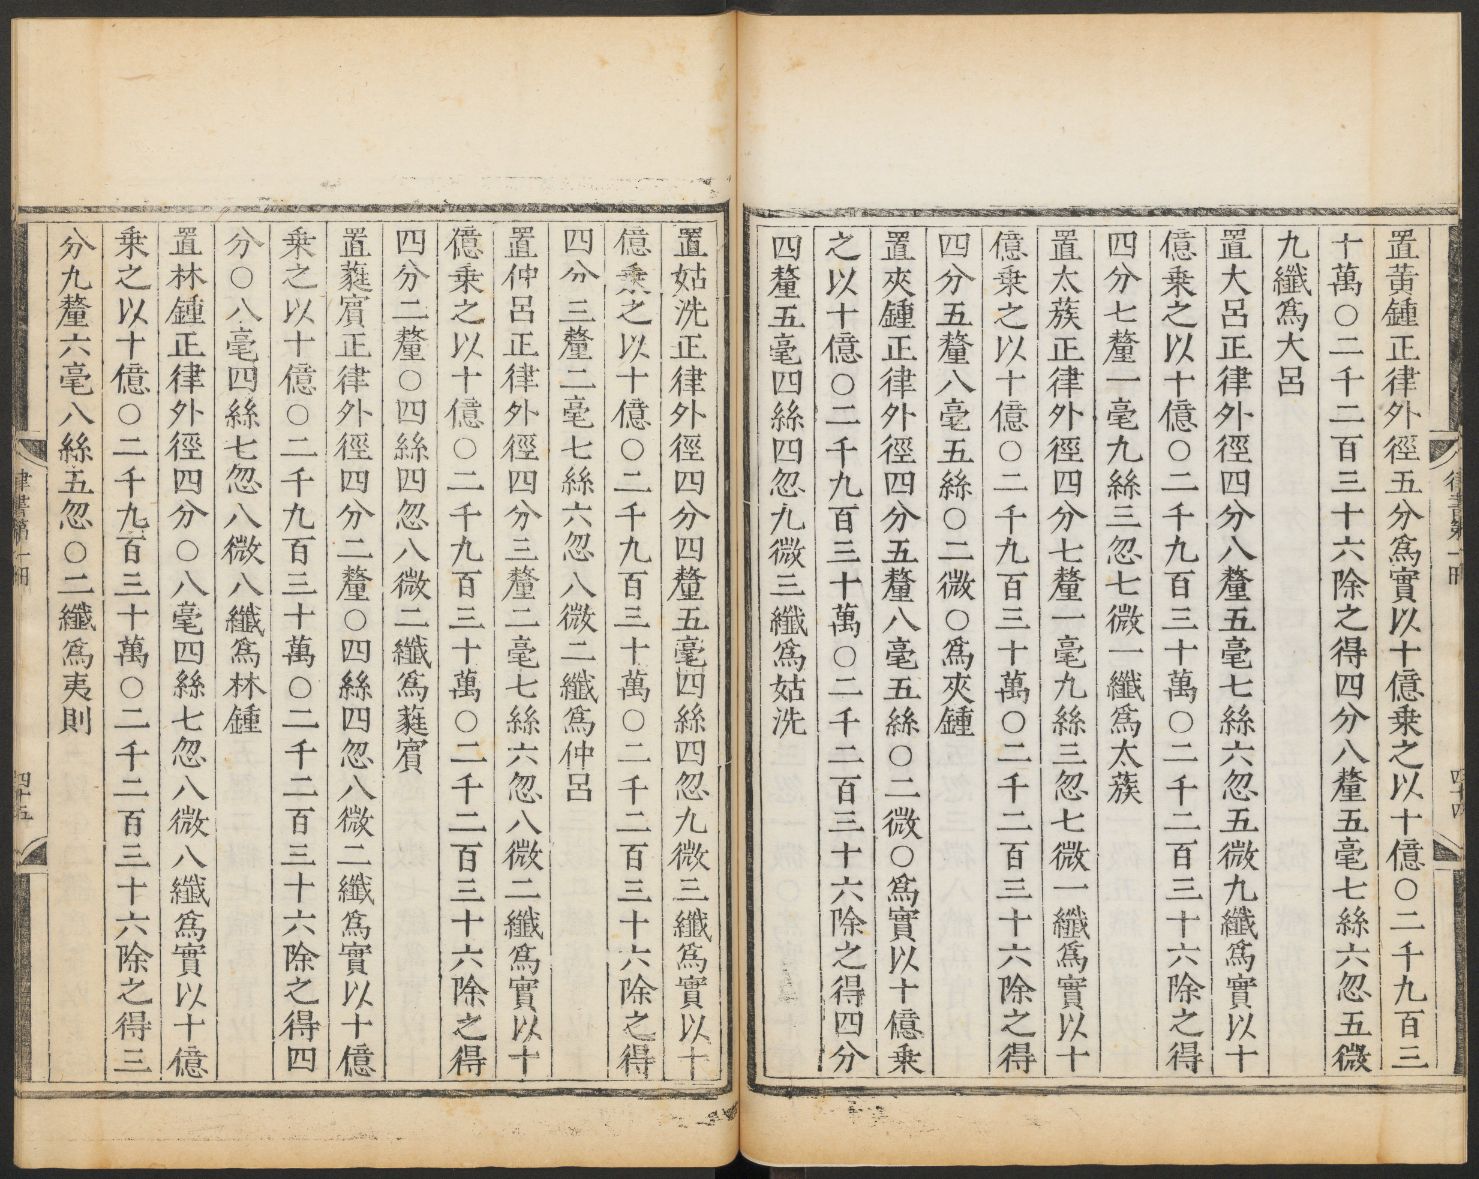 置黃鍾正律外徑五分爲實以十億乘之以十億〇二千九百三
十萬〇二千二百三十六除之得四分八釐五毫七絲六忽五微
九纖爲大呂
置大呂正律外徑四分八釐五毫七絲六忽五微九纖爲實以十
億乘之以十億〇二千九百三十萬〇二千二百三十六除之得
四分七釐一毫九絲三忽七微一纖爲太蔟
置太蔟正律外徑四分七釐一毫九絲三忽七微一纖爲實以十
億乘之以十億〇二千九百三十萬〇二千二百三十六除之得
四分五釐八毫五絲〇二微〇爲夾鍾
置夾鍾正律外徑四分五釐八毫五絲〇二微〇爲實以十億乘
之以十億〇二千九百三十萬〇二千二百三十六除之得四分
四釐五毫四絲四忽九微三纖爲姑洗
律書第一冊
四十四
置姑洗正律外徑四分四釐五毫四絲四忽九微三纖爲實以十
億乘之以十億〇二千九百三十萬〇二千二百三十六除之得
四分三釐二毫七絲六忽八微二纖爲仲呂
置仲呂正律外徑四分三釐二毫七絲六忽八微二纖爲實以十
億乘之以十億〇二千九百三十萬〇二千二百三十六除之得
四分二釐〇四絲四忽八微二纖爲蕤賓
置蕤賓正律外徑四分二釐〇四絲四忽八微二纖爲實以十億
乘之以十億〇二千九百三十萬〇二千二百三十六除之得四
分〇八毫四絲七忽八微八纖爲林鍾
置林鍾正律外徑四分〇八毫四絲七忽八微八纖爲實以十億
乘之以十億〇二千九百三十萬〇二千二百三十六除之得三
分九釐六毫八絲五忽〇二纖爲夷則
律書第一冊
四十五